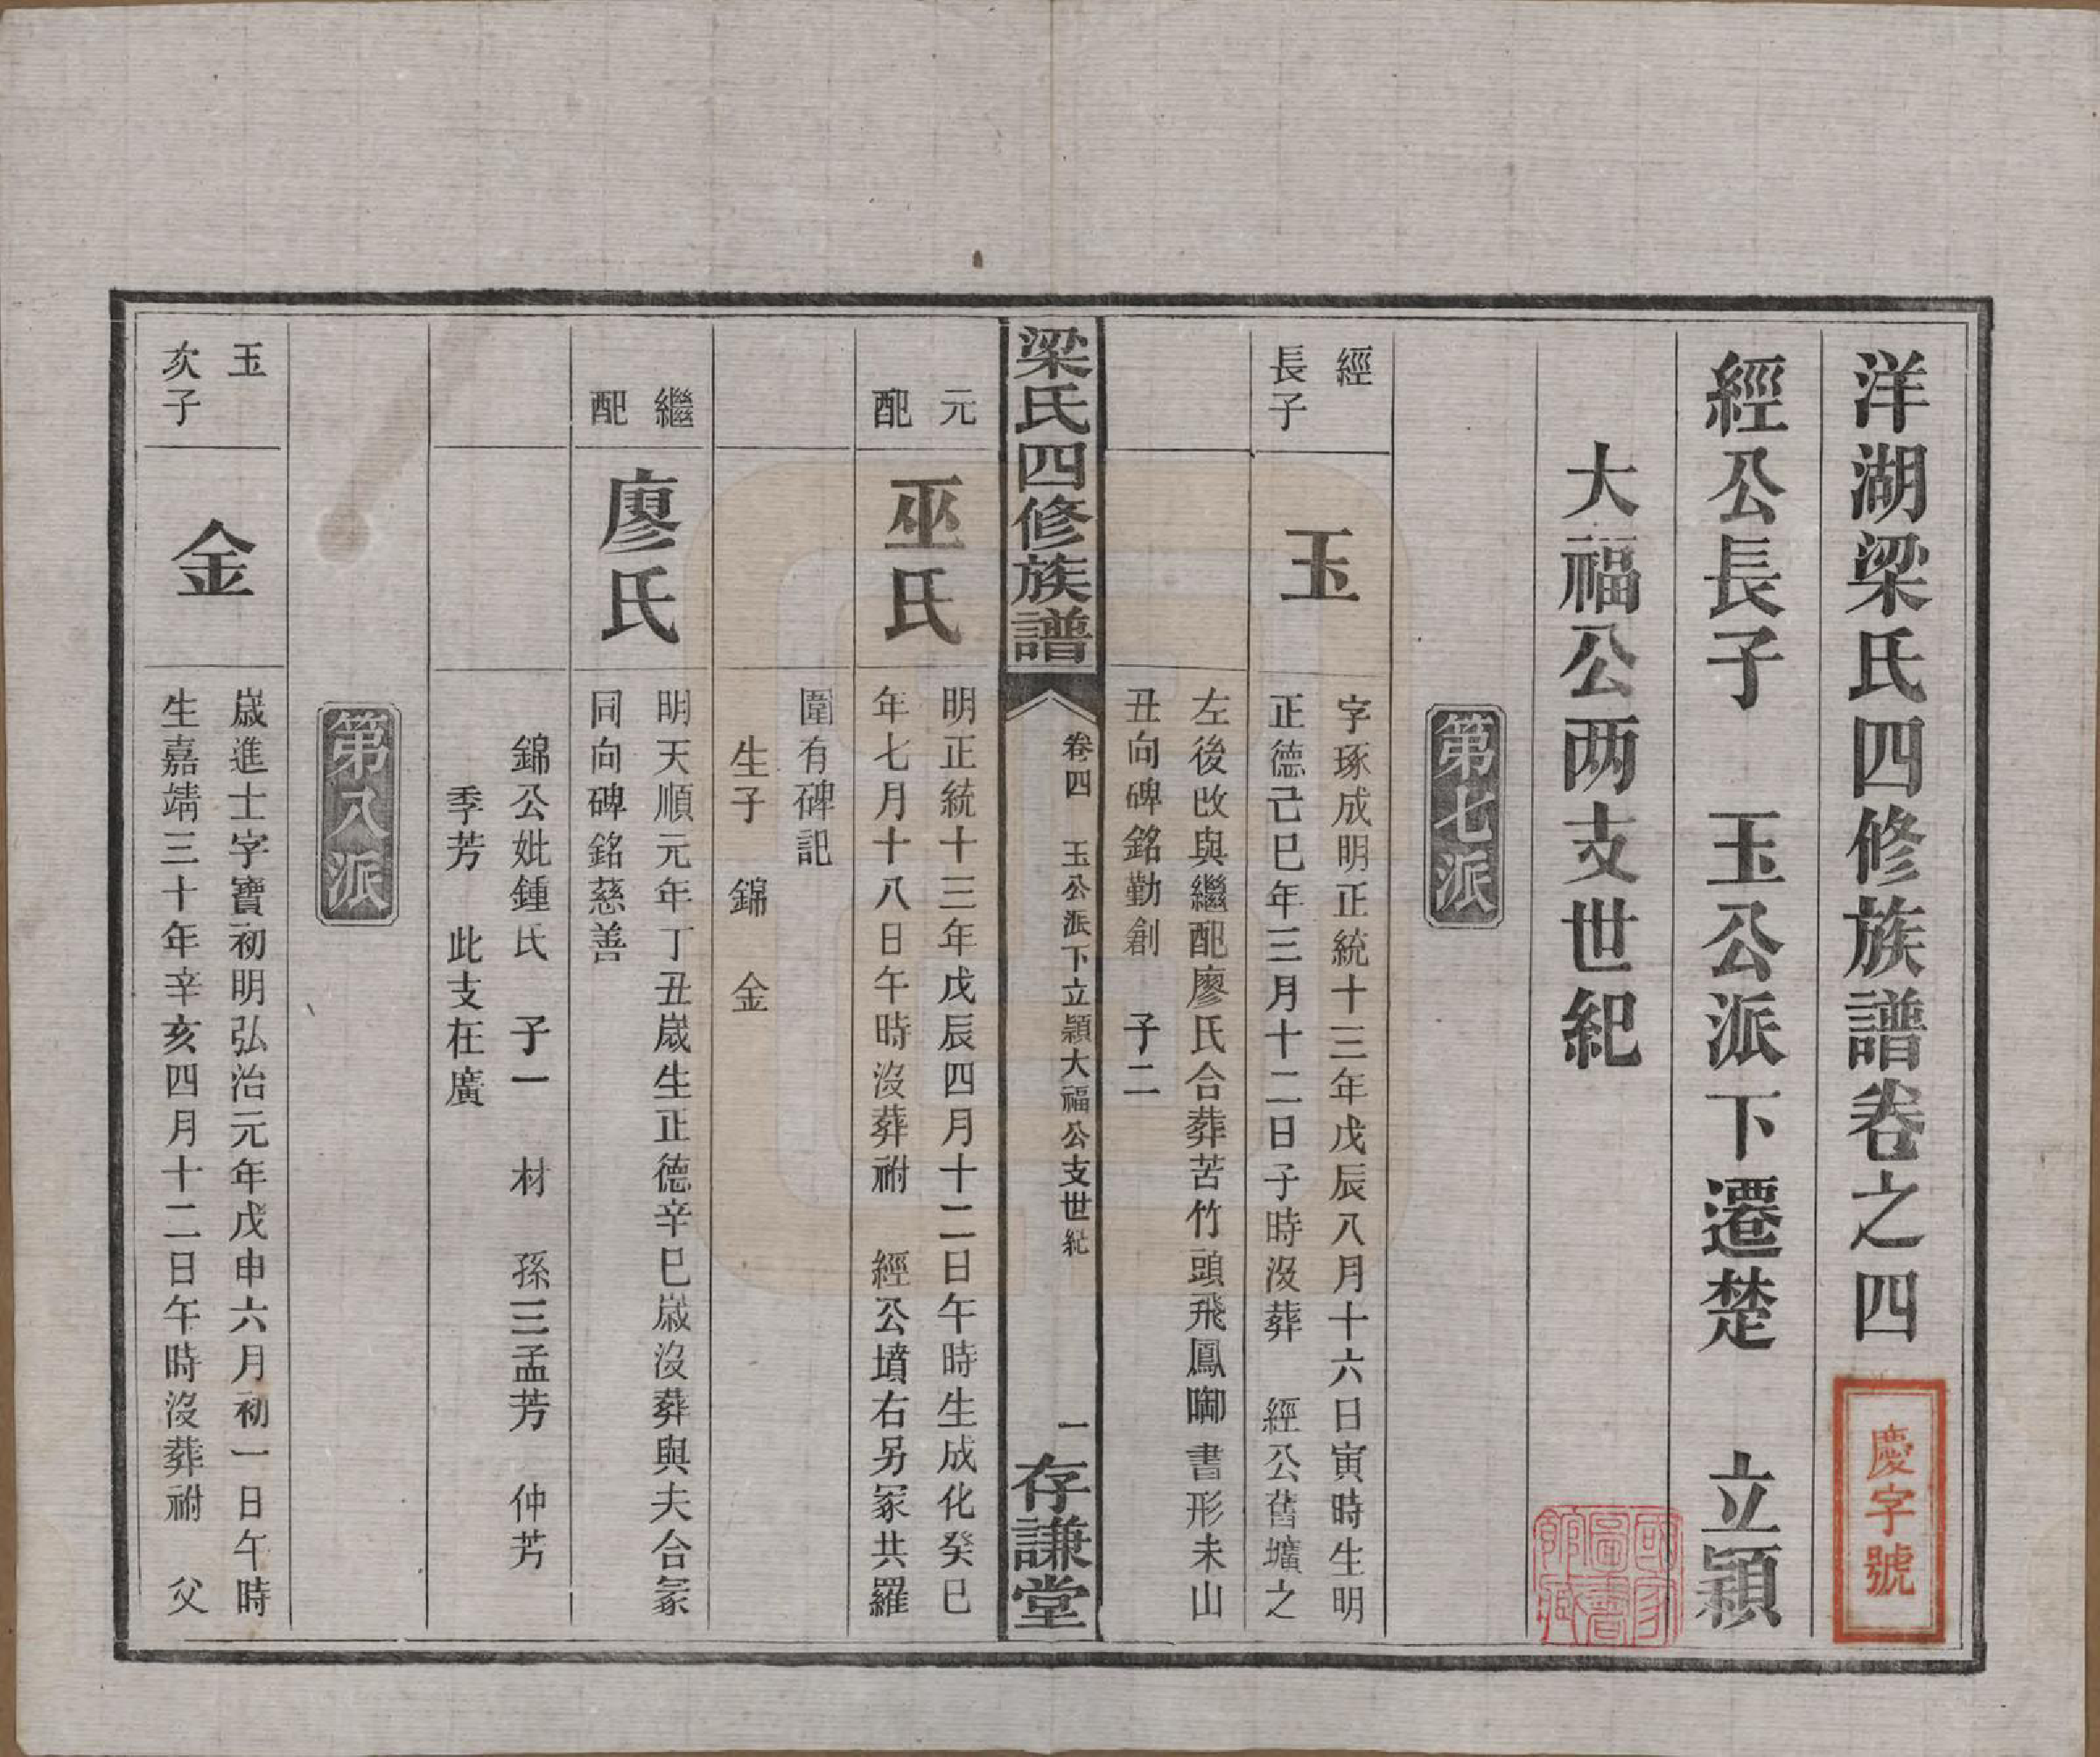 洋湖梁氏四修族譜卷之四
慶字號
經公長子　玉公派下遷楚　立穎
大福公两支世紀
國家圖書館藏
第七派
經
長子
玉
字琢成明正統十三年戊辰八月十六日寅時生明
正德己巳年三月十二日子時沒葬　經公舊壙之
左後改與繼配廖氏合葬苦竹頭飛鳳啣書形未山
丑向碑銘勤創　子二
梁氏四修族譜
卷四　玉公派下立穎大福公支世紀
一
存謙堂
元
配
巫氏
明正統十三年戊辰四月十二日午時生成化癸巳
年七月十八日午時沒葬祔　經公墳右另冢共羅
圍有碑記
生子　錦　金
繼
配
廖氏
明天順元年丁丑歲生正德辛巳歲沒葬與夫合冢
同向碑銘慈善
錦公妣鍾氏　子一　材　孫三孟芳　仲芳
季芳　此支在廣
第八派
玉
次子
金
歲進士字寶初明弘治元年戊申六月初一日午時
生嘉靖三十年辛亥四月十二日午時沒葬祔　父